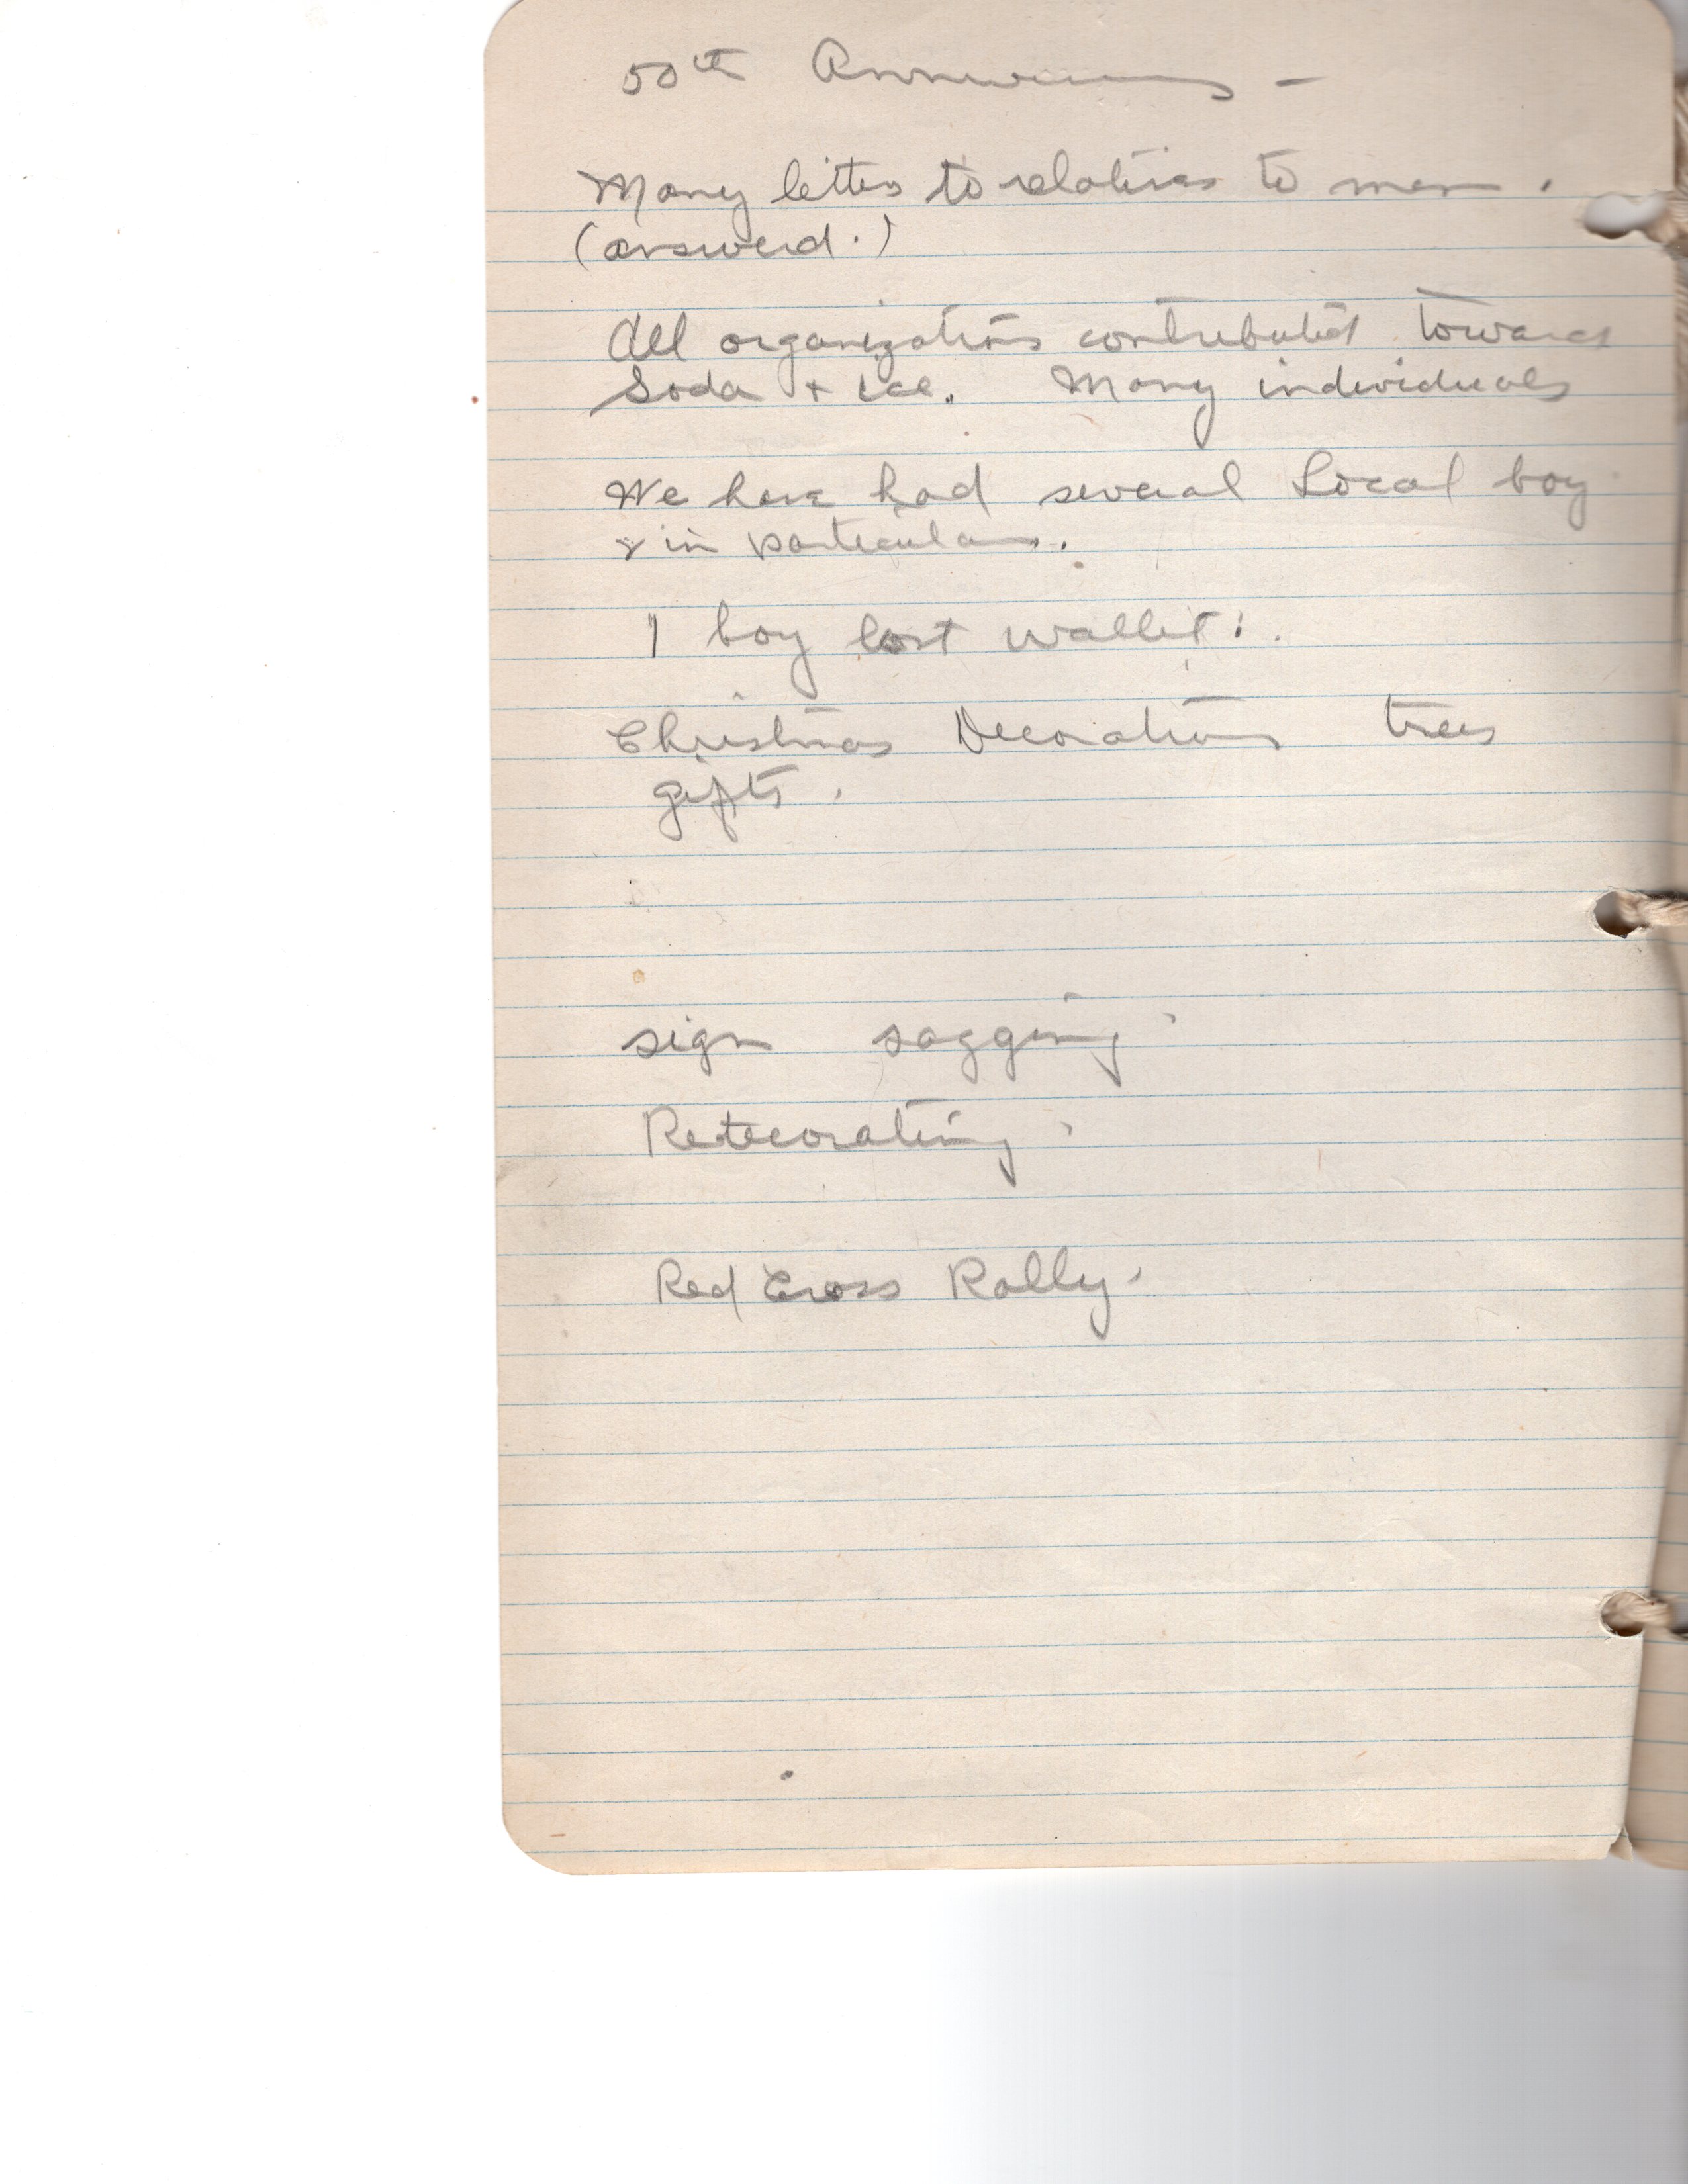 50th Anniversary -
Many letters to relatives to men.
(answerd.)
All organizations contributed towards
Soda + ice. Many individuals
We have had several Local boy
in particular.
1 boy lost wallet!.
Christmas Decorations trees
gifts.
sign sagging.
Redecorating.
Red Cross Rally.